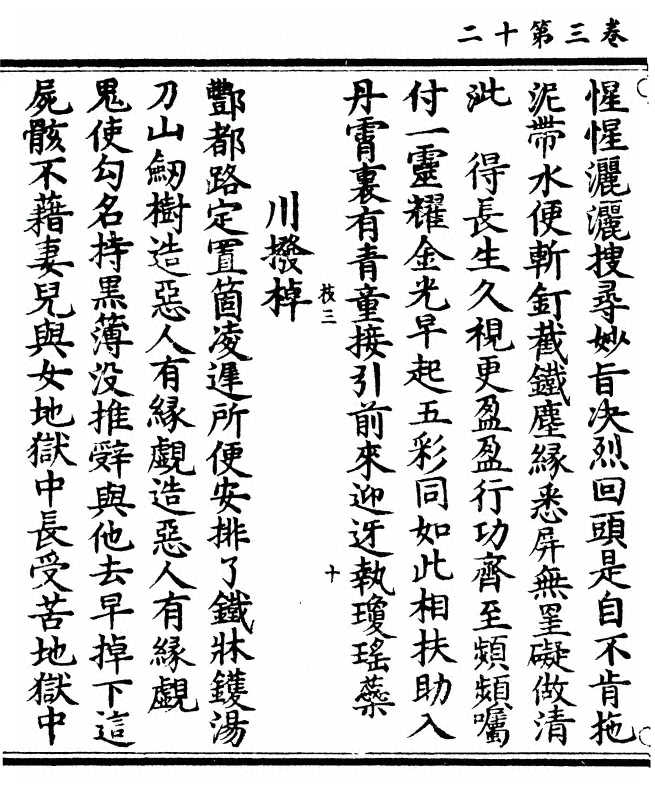 卷三第十二
惺惺灑灑搜尋妙旨决烈回頭是自不肯拖
泥帶水便斬釘截鐵塵緣悉屏無罣礙做清
泚　得長生久視更盈盈行功齊至頻頻囑
付一靈耀金光早起五彩同如此相扶助入
丹霄裏有青童接引前來迎迓執瓊瑤蘂
十
川撥棹
枝三
酆都路定置箇凌遲所便安排了鐵牀鑊湯
刀山劒樹造惡人有緣覷造惡人有緣覷
鬼使勾名持黒簿没推辤與他去早掉下這
屍骸不藉妻兒與女地獄中長受苦地獄中